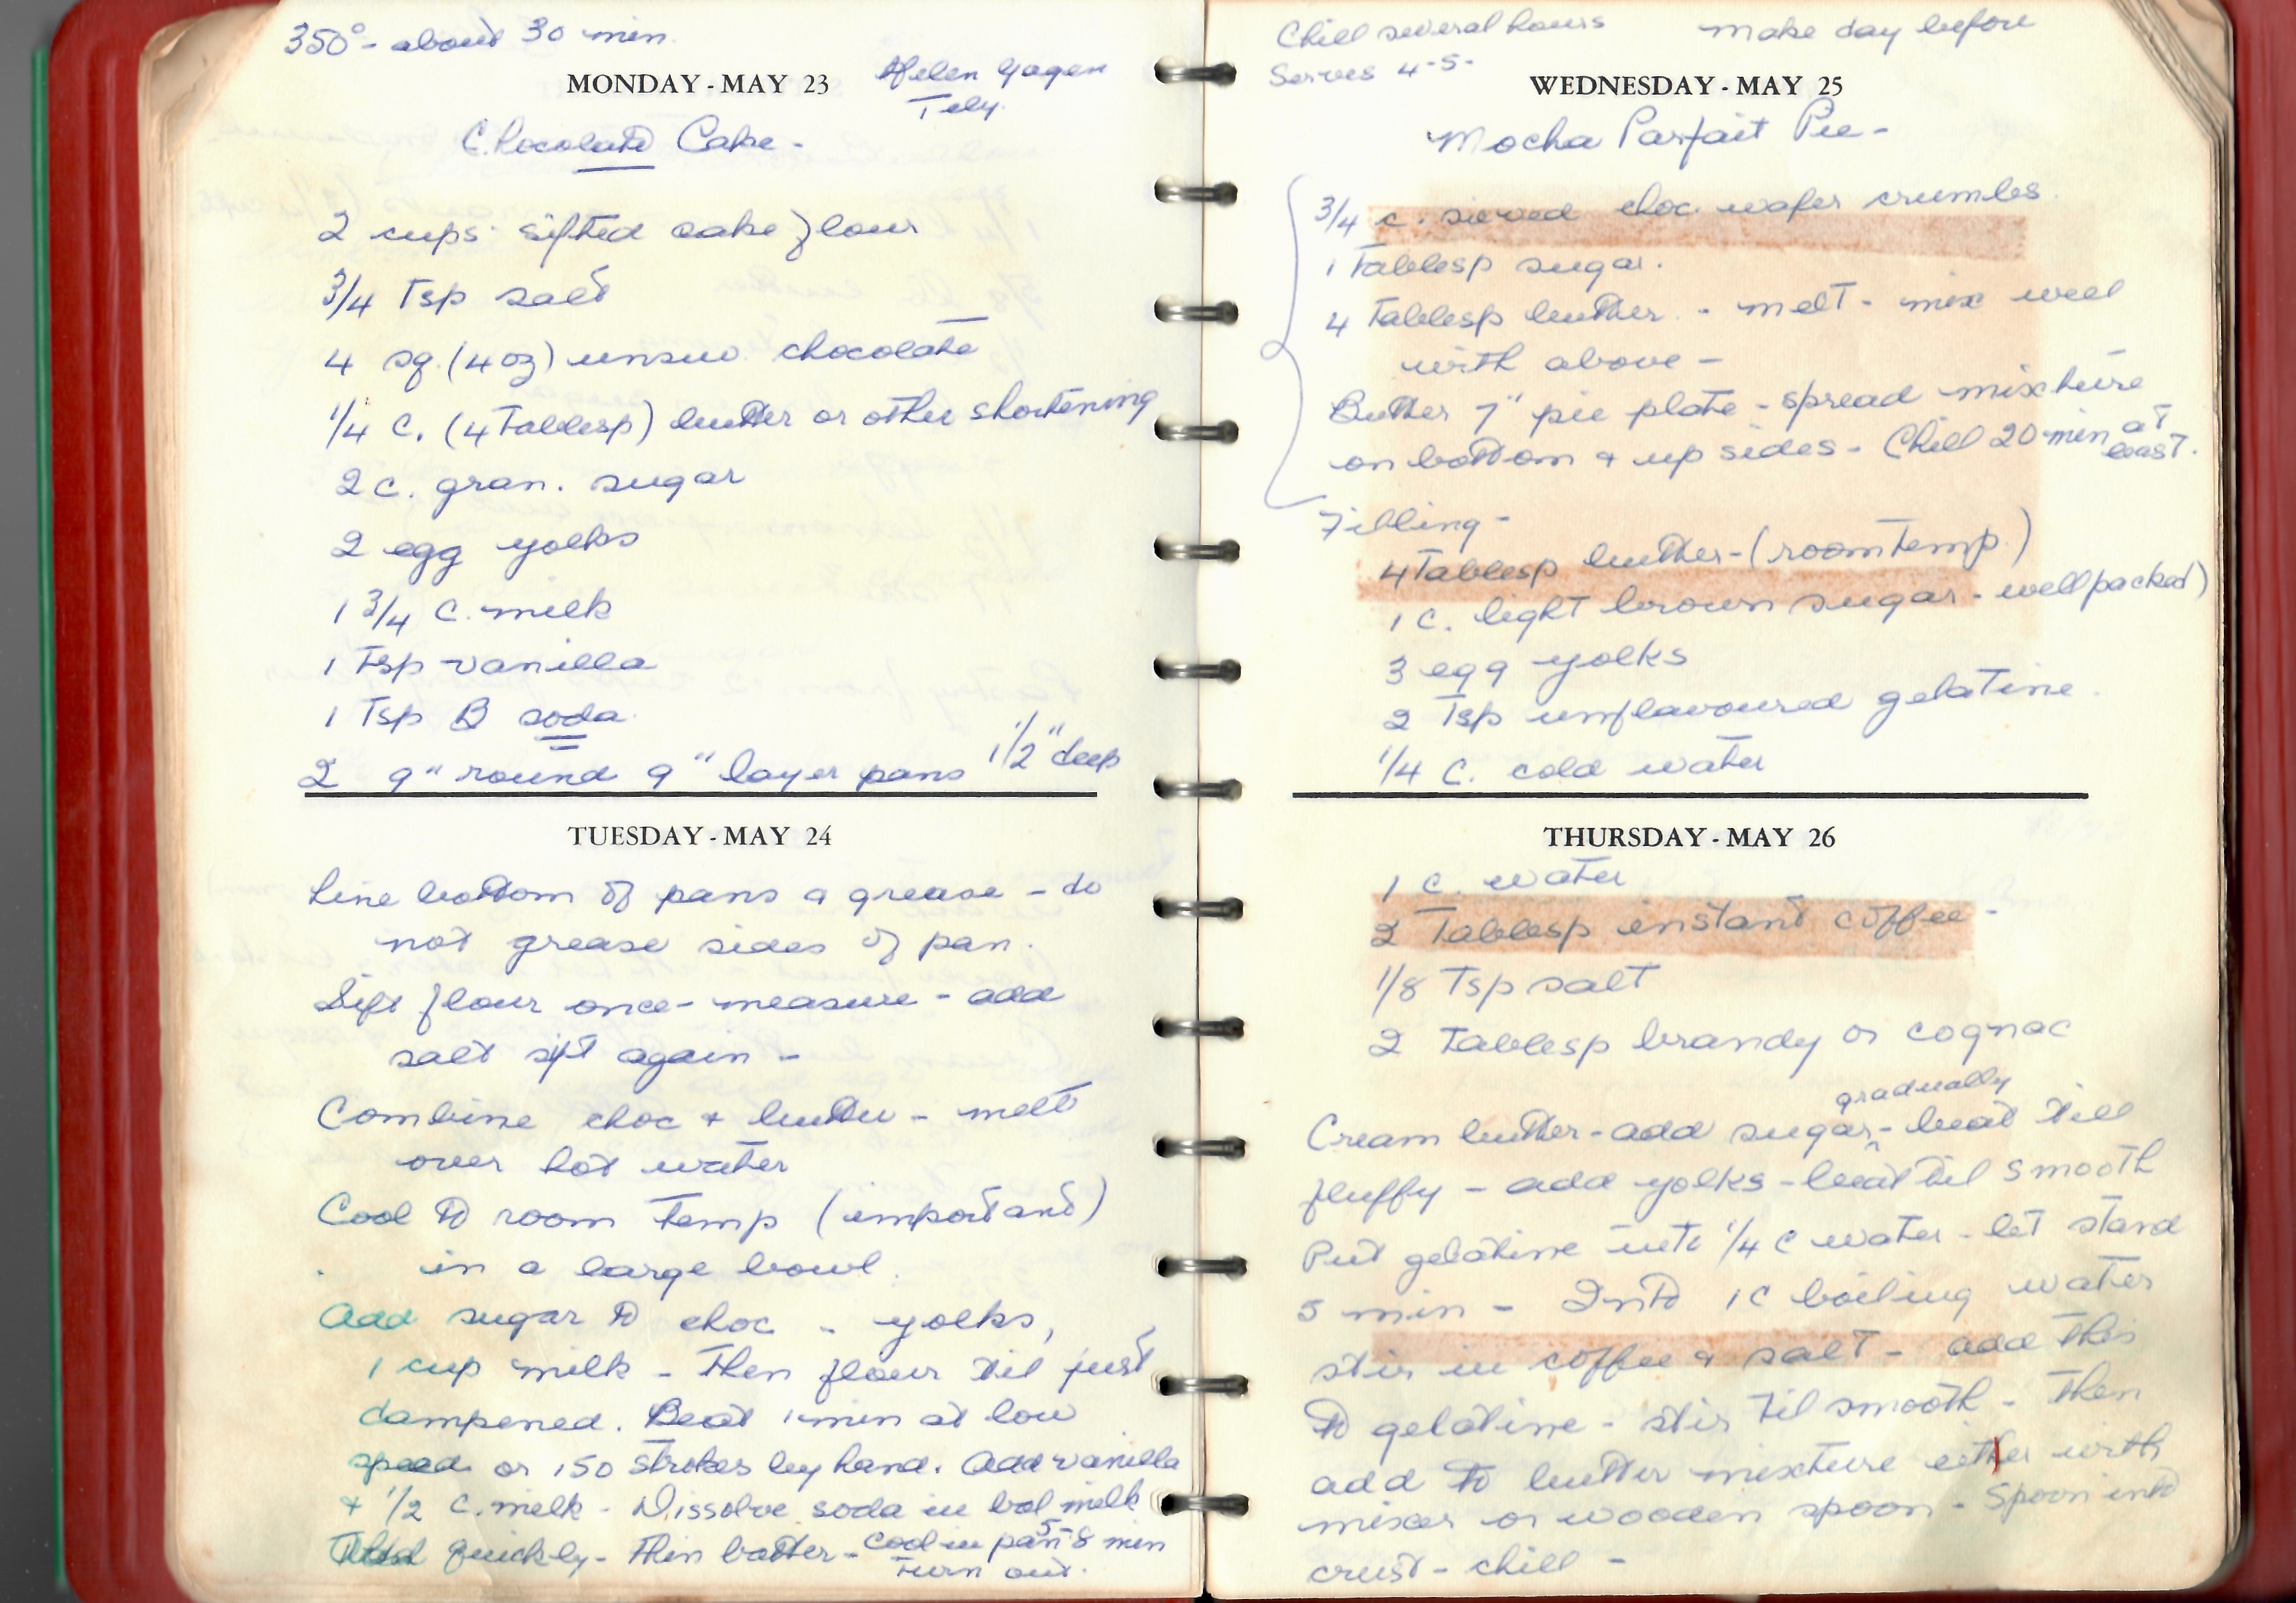 350° - about 30 min.
MONDAY - MAY 23
Helen Gagen
Tely.
Chocolate Cake -
2 cups sifted cake flour
3/4 Tsp salt
4 sq. (4 oz) unsw. chocolate
1/4 C. (4 Tablesp) butter or other shortening
2 C. gran. sugar
2 egg yolks
1 3/4 C. milk
1 Tsp vanilla
1 Tsp B soda.
2 9" round 9" layer pans 1 1/2" deep
TUESDAY - MAY 24
Line bottom of pans & grease - do
not grease sides of pan.
Sift flour once - measure - add
salt sift again -
Combine choc & butter - melt
over hot water
Cool to room temp (important)
in a large bowl.
Add sugar to choc - yolks,
1 cup milk - Then flour til just
dampened. Beat 1 min at low
speed or 150 strokes by hand. Add vanilla
& 1/2 C. milk - Dissolve soda in bal milk
Add quickly - Thin batter - Cool in pan 5-8 min
Turn out.
Chill several hours make day before
Serves 4-5-
WEDNESDAY - MAY 25
Mocha Parfait Pie -
3/4 c. sieved choc. wafer crumbs.
1 Tablesp sugar.
4 Tablesp butter. - melt - mix well
with above -
Butter 7" pie plate - spread mixture
on bottom & up sides - Chill 20 min at
least.
Filling -
4 Tablesp butter - (room temp.)
1 C. light brown sugar - well packed)
3 egg yolks
2 Tsp unflavoured gelatine.
1/4 C. cold water
THURSDAY - MAY 26
1 C. water
2 Tablesp instant coffee -
1/8 Tsp salt
2 Tablesp brandy or cognac
gradually
Cream butter - add sugar - beat till
fluffy - add yolks - beat til smooth
Put gelatine into 1/4 C water - let stand
5 min - Into 1 C boiling water
stir in coffee & salt - add this
to gelatine - stir til smooth - Then
add to butter mixture either with
mixer or wooden spoon - Spoon into
crust - chill -